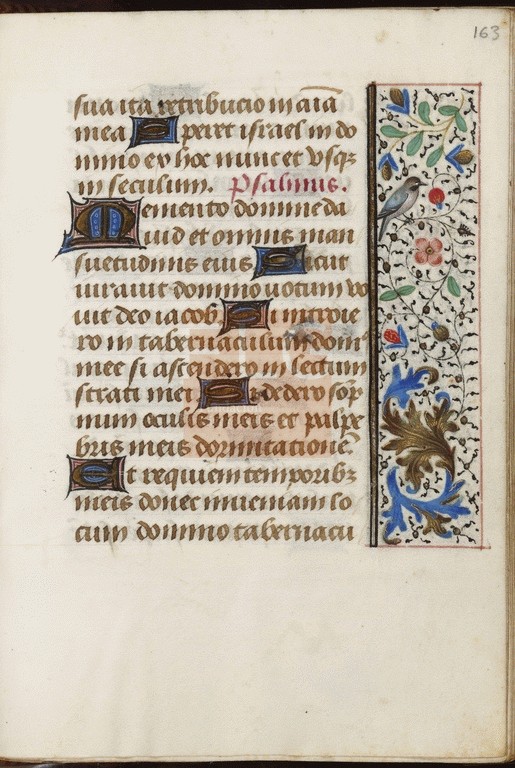 163
sua ita retribucio in aīa
mea Speret israel in do
mino ex hoc nunc et vsqꝫ
in seculum. Psalmus.
Memento domine da
uid et omnis man
suetudinis eius Sicut
iurauit domino uotum vo
uit deo iacob Si introie
ro in tabernaculum dom⁹
mee si ascendero in lectum
strati mei Si dedero sōp
num oculis meis et palpe
bris meis dormitationē
Et requiem temporibꝫ
meis donec inueniam lo
cum domino tabernacu